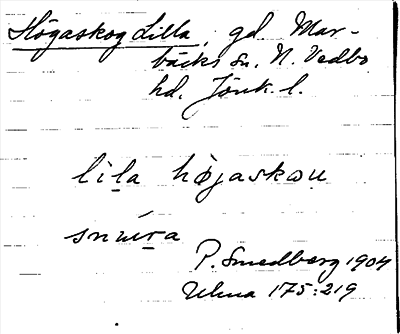 Högaskog Lilla, gd. Mar-
bäcks sn. N. Vedbo
hd. Jönk. l.
lila högaskou
snuira
P. Smedberg 1904
Ulma 175:219